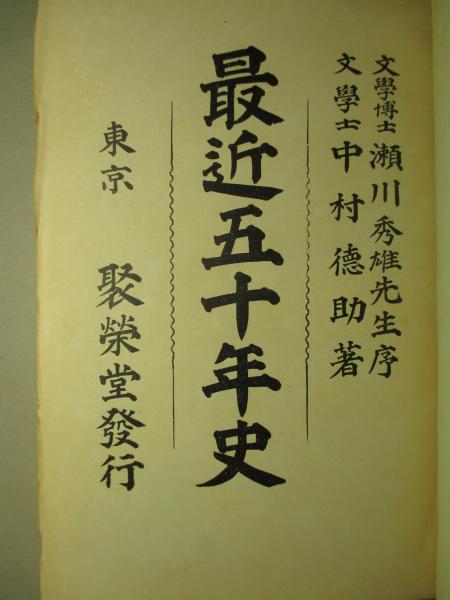 文學博士 瀨川秀雄先生序
文學士 中村德助著
最近五十年史
東京 聚榮堂發行